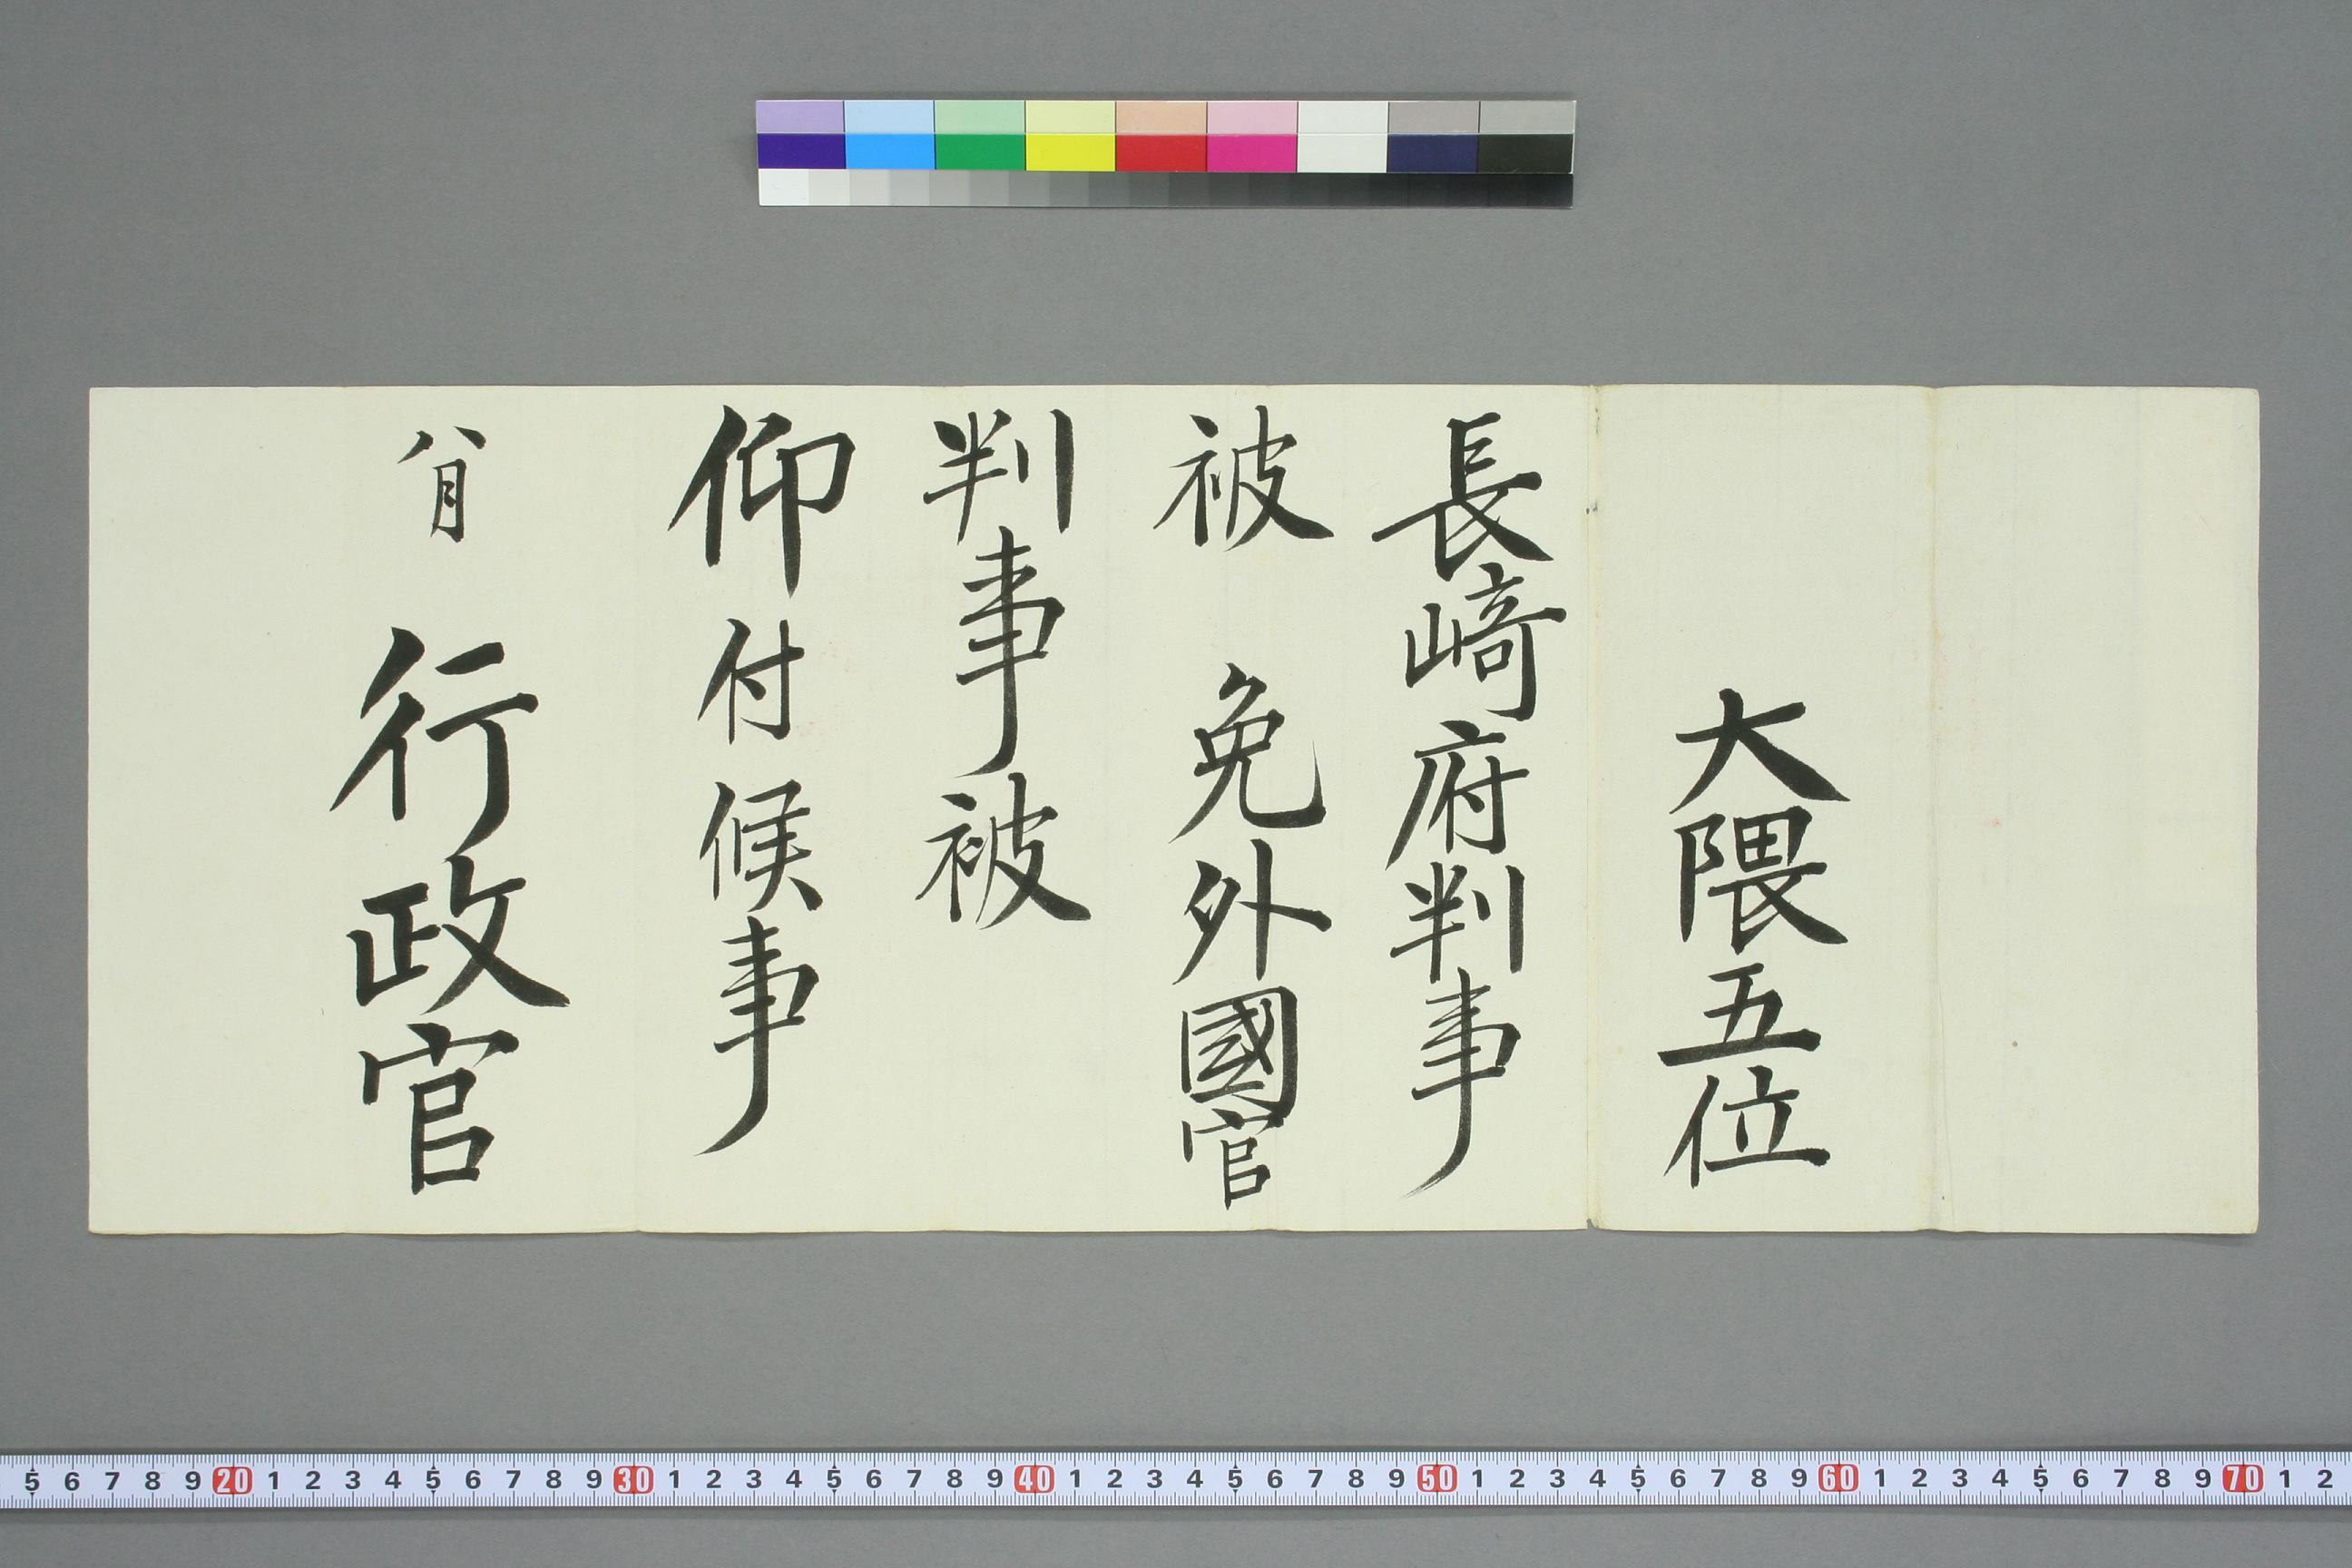 大隈五位
長﨑府判事
被 免外國官
判事被
仰付候事
八月 行政官
5 6 7 8 9 20 1 2 3 4 5 6 7 8 9 30 1 2 3 4 5 6 7 8 9 40 1 2 3 4 5 6 7 8 9 50 1 2 3 4 5 6 7 8 9 60 1 2 3 4 5 6 7 8 9 70 1 2